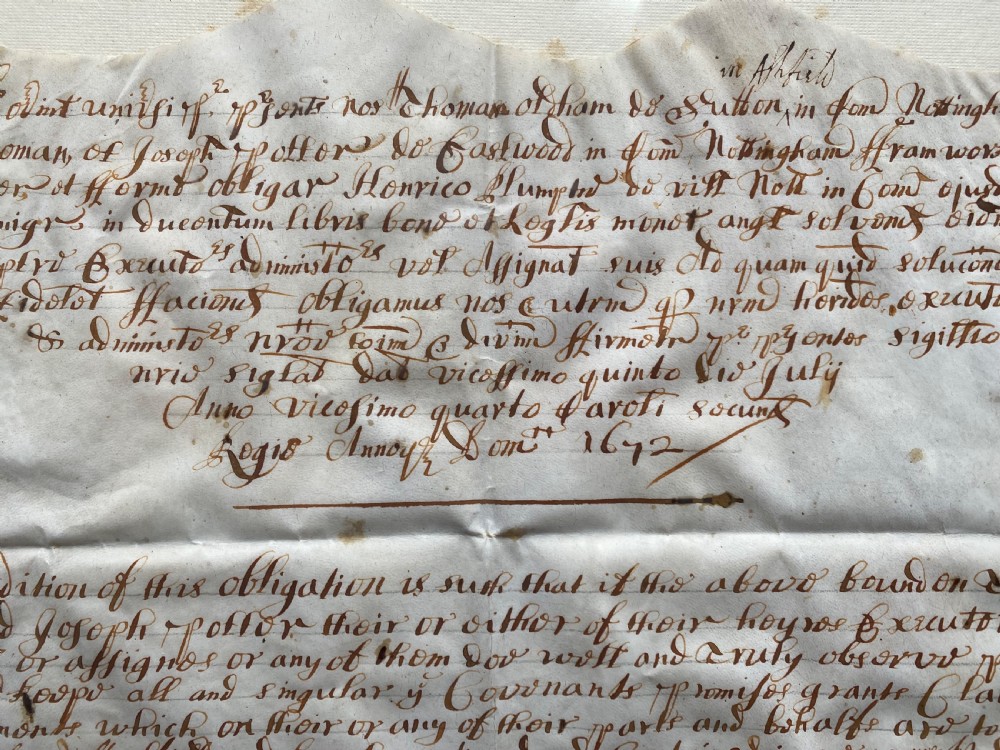 in Ashfield
orint univsi p pr psents nos Thomam Oldham de Sutton in Com Nottingh
oman et Joseph Potter de Eastwood in Com Nottingham ffram wor
er et fferme obligar Henrico Plumptre de vill Nott in Com ejus
migr in ducentum libris bone et Leglis monet angl solvend eid
ptre Executo rs administo rs vel Assignat suis Ad quam quid soluconem
fidelet ffaciend obligamus nos & utrm q nrm heredes, execut
& administo rs nror coim & divim ffirmetr pr psentes sigillo
nrie siglat dat vicessimo quinto die Julij
Anno vicesimo quarto Caroli secund
Regis Annoq Dom 1672
dition of this obligation is such that if the above bounden T
d Joseph Potter their or either of their heyres Executo
or assignes or any of them doe well and Truly observe p
keepe all and singular ye Covenants Promises grants Cla
ments which on their or any of their parts and behalfs are to